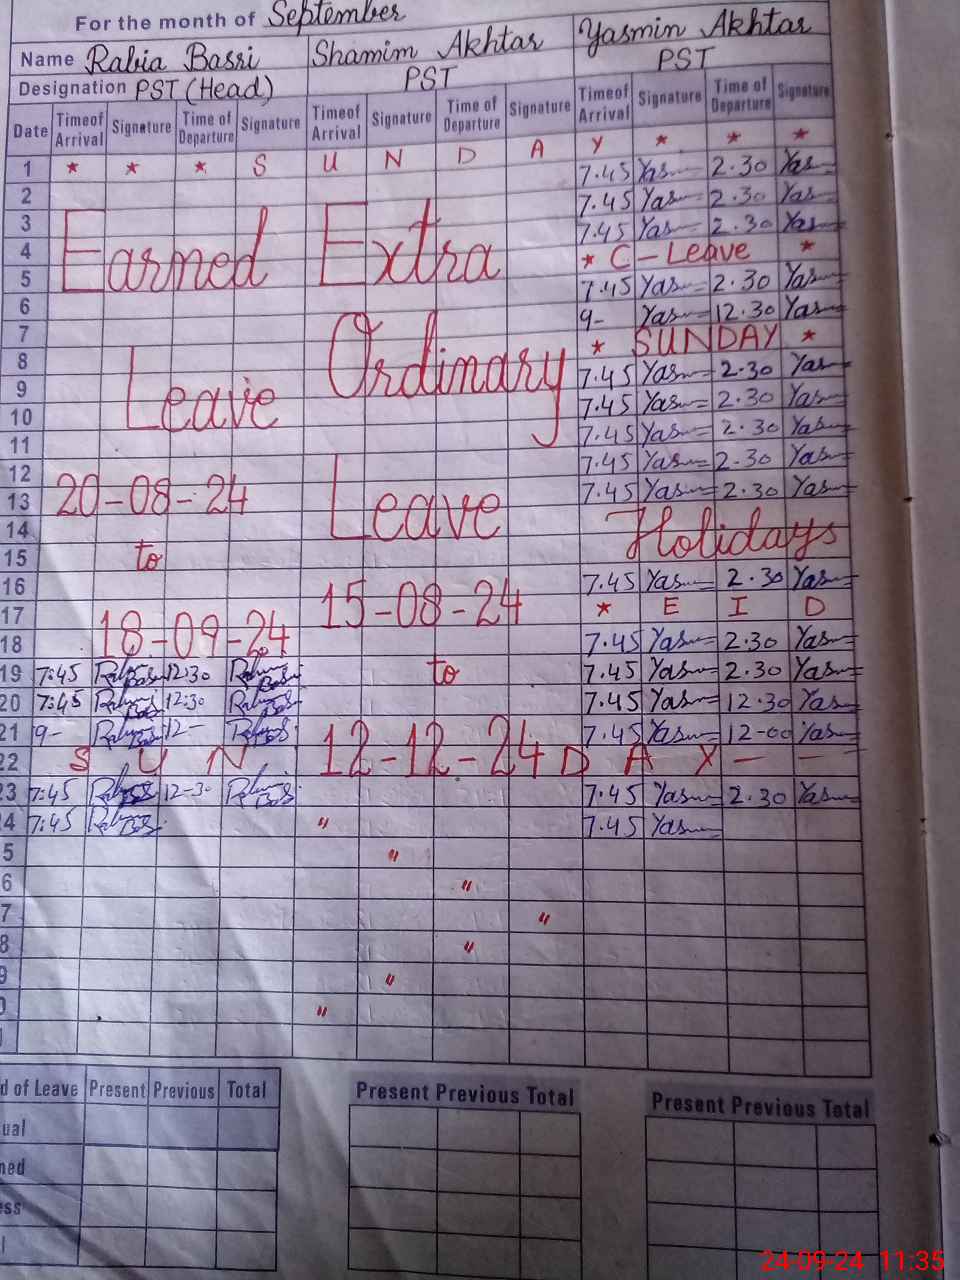 For the month of September
Name Rabia Basri Shamim Akhtar Yasmin Akhtar
Designation PST (Head) PST PST
Date Timeof Arrival Signature Time of Departure Signature Timeof Arrival Signature Time of Departure Signature Timeof Arrival Signature Time of Departure Signature
1 * * * S U N D A Y * * *
2 7.45 Yas 2.30 Yas
3 7.45 Yas 2.30 Yas
4 7.45 Yas 2.30 Yas
5 * C-Leave *
6 7.45 Yas 2.30 Yas
7 9- Yas 12.30 Yas
8 * SUNDAY *
9 7.45 Yas 2.30 Yas
10 7.45 Yas 2.30 Yas
11 7.45 Yas 2.30 Yas
12 7.45 Yas 2.30 Yas
13 7.45 Yas 2.30 Yas
14
15 Holidays
16 7.45 Yas 2.30 Yas
17 * E I D
18 7.45 Yas 2.30 Yas
Earned Extra
Leave Ordinary
20-08-24 Leave
to
18-09-24 15-08-24
to
12-12-24
19 7:45 12:30 7.45 Yas 2.30 Yas
20 7:45 12:30 7.45 Yas 12.30 Yas
21 9- 12- 7.45 Yas 12-00 Yas
22 S U N D A Y - -
3 7:45 12-30 7.45 Yas 2.30 Yas
4 7:45 " 7.45 Yas
5 "
6 "
7 "
8 "
9 "
0 "
d of Leave Present Previous Total Present Previous Total Present Previous Total
ual
ned
ess
l
24-09-24 11:35